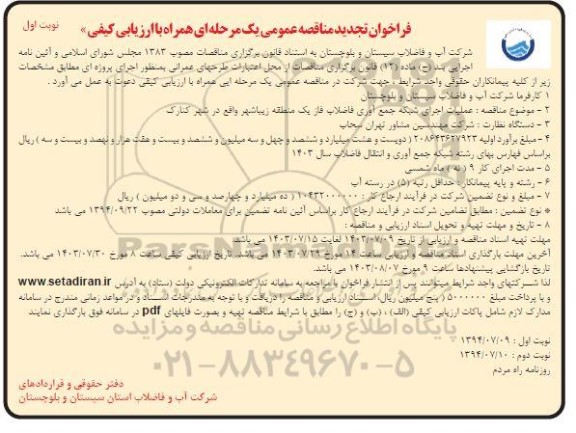 نوبت اول
فراخوان تجدید مناقصه عمومی یک مرحله‌ای همراه با ارزیابی کیفی»
شرکت آب و فاضلاب سیستان و بلوچستان به استناد قانون برگزاری مناقصات مصوب ۱۳۸۳ مجلس شورای اسلامی و آئین نامه
اجرایی بند (ج) ماده (۱۲) قانون برگزاری مناقصات از محل اعتبارات طرحهای عمرانی بمنظور اجرای پروژه ای مطابق مشخصات
زیر از کلیه پیمانکاران حقوقی واجد شرایط ، جهت شرکت در مناقصه عمومی یک مرحله ایی همراه با ارزیابی کیفی دعوت به عمل می آورد .
۱ کارفرما شرکت آب و فاضلاب سیستان و بلوچستان
۲ – موضوع مناقصه : عملیات اجرای شبکه جمع آوری فاضلاب فاز یک منطقه زیباشهر واقع در شهر کنارک
۳ – دستگاه نظارت : شرکت مهندسین مشاور تهران سحاب
۴ – مبلغ برآورد اولیه ۲۰۸۶۴۳۶۲۷۹۲۳ (دویست و هشت میلیارد و ششصد و چهل و سه میلیون و ششصد و بیست و هفت هزار و نهصد و بیست و سه ) ریال
براساس فهارس بهای رشته شبکه جمع آوری و انتقال فاضلاب سال ۱۴۰۳
۵ – مدت اجرای کار ۹ ( نه ) ماه شمسی
۶ – رشته و پایه پیمانکار : حداقل رتبه (۵) در رسته آب
۷ – مبلغ و نوع تضمین شرکت در فرآیند ارجاع کار : ۱۰۴۳۲۰۰۰۰۰۰ ( ده میلیارد و چهارصد و سی و دو میلیون ) ریال
* نوع تضمین : مطابق تضامین شرکت در فرآیند ارجاع کار براساس آئین نامه تضمین برای معاملات دولتی مصوب ۱۳۹۴/۰۹/۲۲ می باشد
۸ – تاریخ و مهلت تهیه و تحویل اسناد ارزیابی و مناقصه :
مهلت تهیه اسناد مناقصه و ارزیابی از تاریخ ۱۴۰۳/۰۷/۰۹ لغایت ۱۴۰۳/۰۷/۱۵ می باشد.
آخرین مهلت بارگذاری اسناد مناقصه و ارزیابی ساعت ۱۴ مورخ ۱۴۰۳/۰۷/۲۹ می باشد. تاریخ ارزیابی کیفی ساعت ۸ مورخ ۱۴۰۳/۰۷/۳۰ می باشد.
تاریخ بازگشایی پیشنهادها ساعت ۹ مورخ ۱۴۰۳/۰۸/۰۷ می باشد.
لذا شرکتهای واجد شرایط میتوانند پس از انتشار فراخوان با مراجعه به سامانه تدارکات الکترونیکی دولت (ستاد) به آدرس www.setadiran.ir
و با پرداخت مبلغ ۵۰۰۰۰۰۰ ( پنج میلیون ریال) اسناد ارزیابی و مناقصه را دریافت و با توجه به مندرجات اسناد و در مواعد زمانی مندرج در سامانه
مدارک لازم شامل پاکات ارزیابی کیفی (الف) ، (ب) و (ج) را مطابق با شرایط مناقصه تهیه و بصورت فایلهای pdf در سامانه فوق بارگذاری نمایند
نوبت اول : ۱۳۹۴/۰۷/۰۹
نوبت دوم : ۱۳۹۴/۰۷/۱۰
روزنامه راه مردم
دفتر حقوقی و قراردادهای
شرکت آب و فاضلاب استان سیستان و بلوچستان
پایگاه اطلاع رسانی مناقصه و مزایده
۰۲۱-۸۸۳۴۹۶۷۰-۵